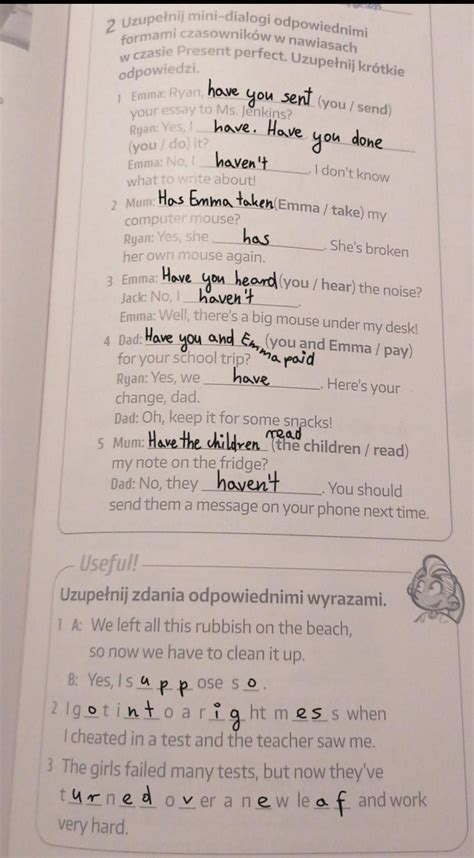 2 Uzupełnij mini-dialogi odpowiednimi
formami czasowników w nawiasach
w czasie Present perfect. Uzupełnij krótkie
odpowiedzi.
1 Emma: Ryan, have you sent (you / send)
your essay to Ms. Jenkins?
Ryan: Yes, I have. Have you done
(you / do) it?
Emma: No, I haven't, I don't know
what to write about!
2 Mum: Has Emma taken (Emma / take) my
computer mouse?
Ryan: Yes, she has. She's broken
her own mouse again.
3 Emma: Have you heard (you / hear) the noise?
Jack: No, I haven't.
Emma: Well, there's a big mouse under my desk!
4 Dad: Have you and Emma paid (you and Emma / pay)
for your school trip?
Ryan: Yes, we have. Here's your
change, dad.
Dad: Oh, keep it for some snacks!
5 Mum: Have the children read (the children / read)
my note on the fridge?
Dad: No, they haven't. You should
send them a message on your phone next time.
Useful!
Uzupełnij zdania odpowiednimi wyrazami.
1 A: We left all this rubbish on the beach,
so now we have to clean it up.
B: Yes, I suppose so.
2 I got into a right mess when
I cheated in a test and the teacher saw me.
3 The girls failed many tests, but now they've
turned over a new leaf and work
very hard.